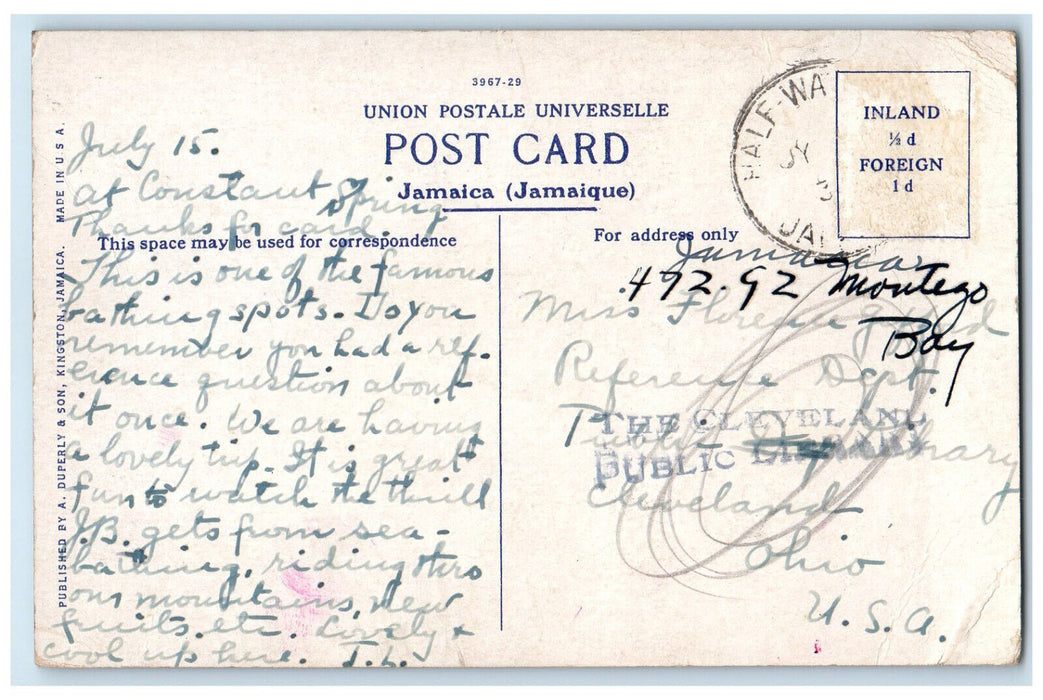 3967-29
UNION POSTALE UNIVERSELLE
POST CARD
Jamaica (Jamaique)
This space may be used for correspondence
For address only
INLAND
½ d
FOREIGN
1d
HALF-WA
JY
JA
PUBLISHED BY A. DUPERLY & SON, KINGSTON, JAMAICA. MADE IN U S A.
July 15.
at Constant Spring
Thanks for card.
This is one of the famous
bathing spots. Do you
remember you had a ref-
erence question about
it once. We are having
a lovely trip. It is great
fun to watch the thrill
J.B. gets from sea-
bathing, riding thro
our mountains, new
fruits etc. Lovely &
cool up here. J.L.
Jamaica
472.92 Montego
Bay
Miss Florence
Reference Dept.
Public Library
Cleveland
Ohio
U. S. A.
THE CLEVELAND
PUBLIC LIBRARY